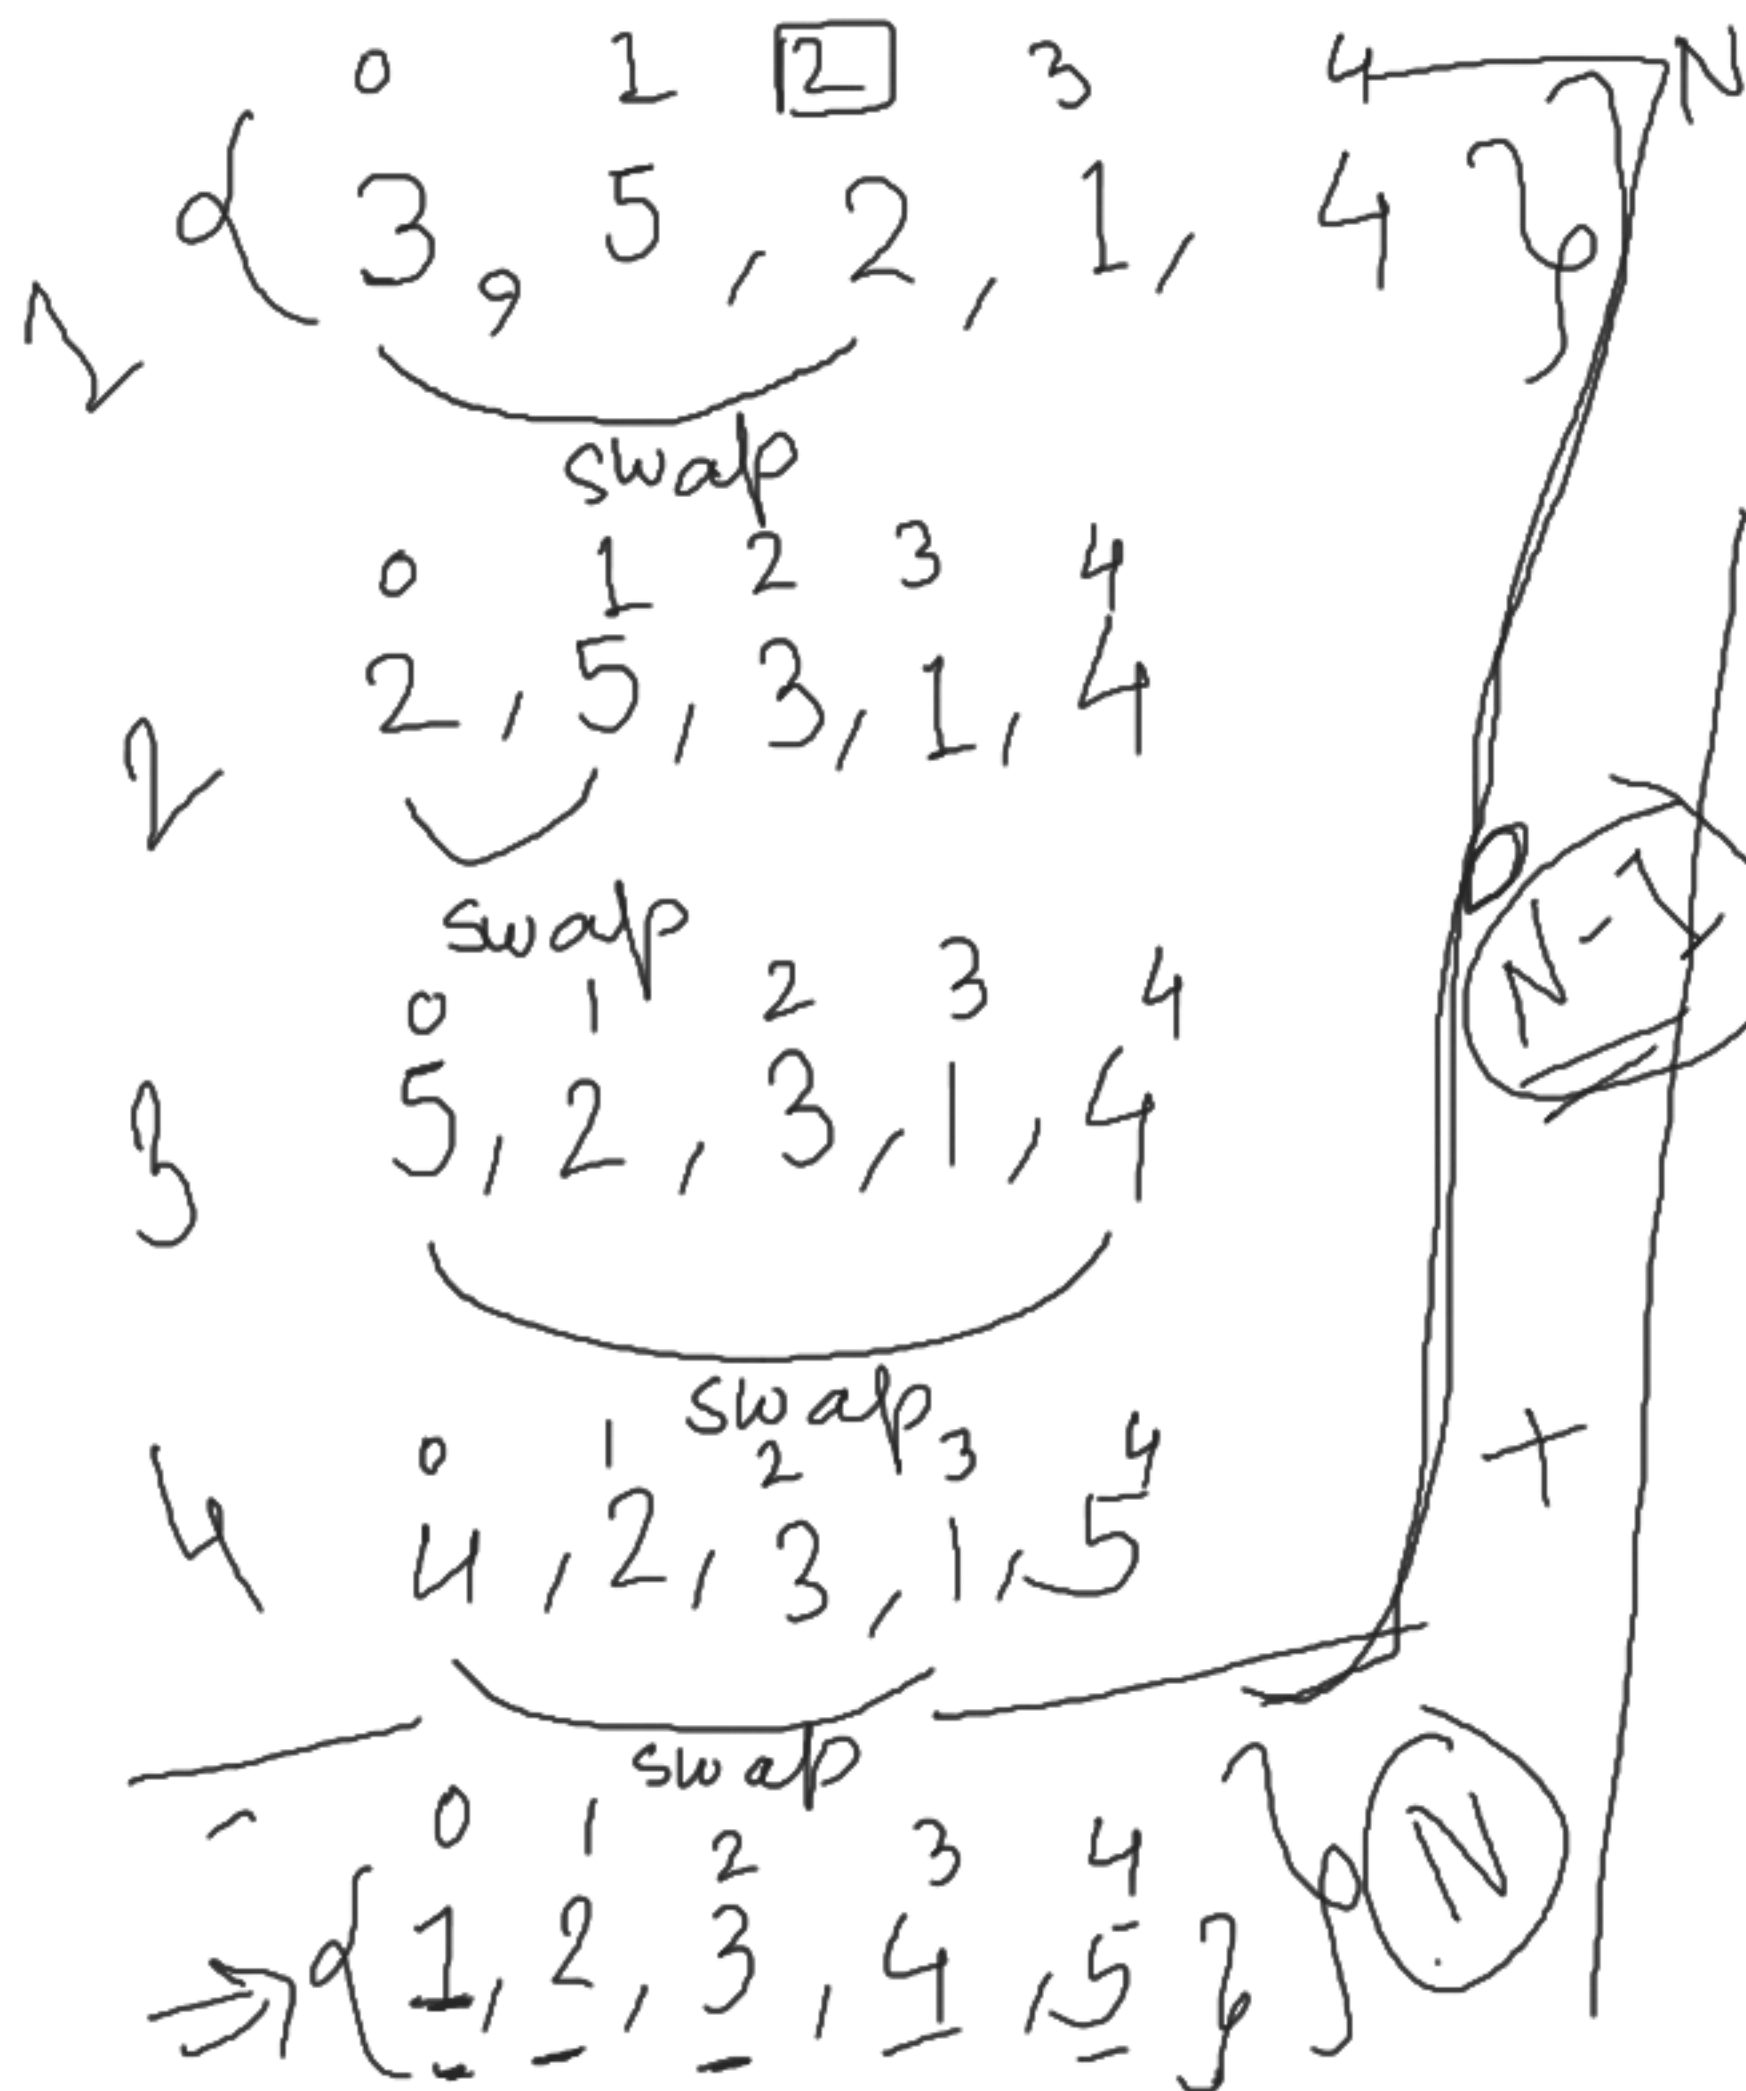 0 1 2 3 4 N
{ 3, 5, 2, 1, 4 }
1
swap
0 1 2 3 4
2, 5, 3, 1, 4
2
swap
N-1
0 1 2 3 4
5, 2, 3, 1, 4
3
swap
+
0 1 2 3 4
4, 2, 3, 1, 5
4
swap
0 1 2 3 4
N
⇒ { 1, 2, 3, 4, 5 }